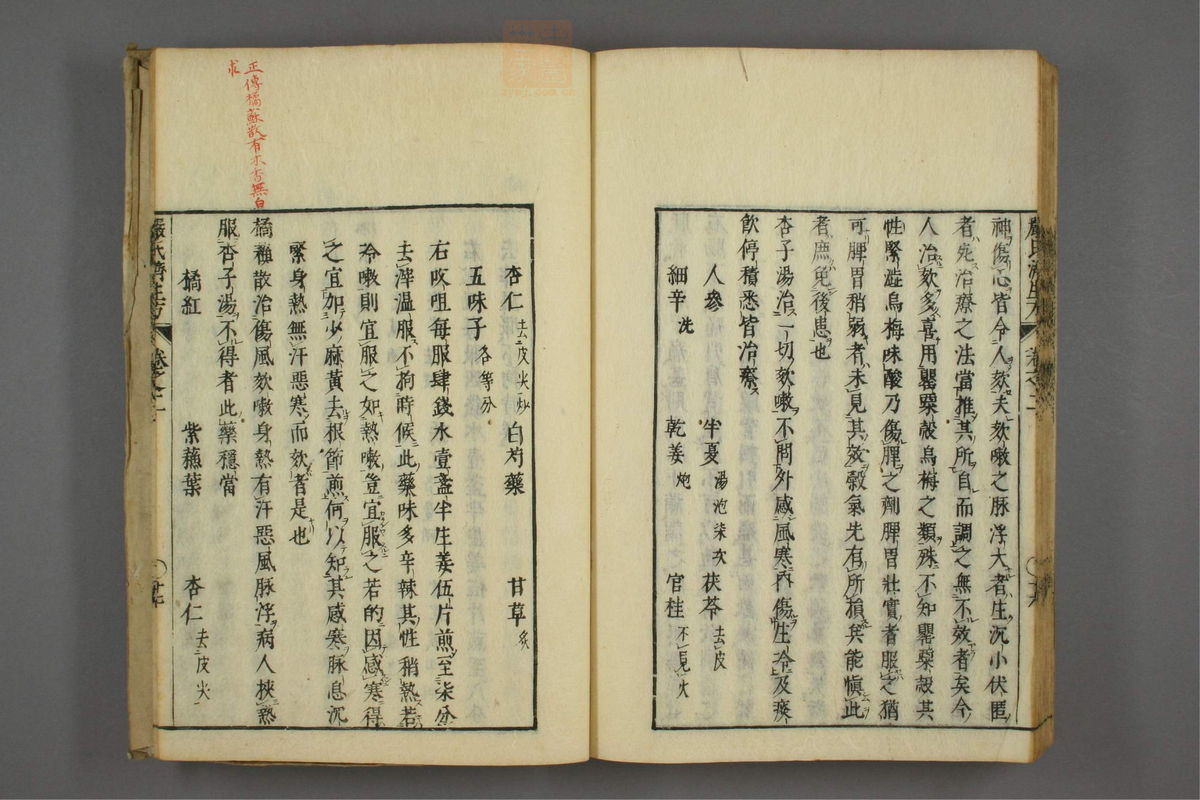 神傷心皆令人欬夫欬嗽之脉浮大者生沉小伏匿
者死治療之法當推其所自而調之無不效者矣今
人治欬多喜用罌粟殼烏梅之類殊不知罌粟殼其
性緊澁烏梅味酸乃傷脾之劑脾胃壯實者服之猶
可脾胃稍弱者未見其效穀氣先有所損矣能愼此
者庶免後患也
杏子湯治一切欬嗽不問外感風寒内傷生冷及痰
飲停積悉皆治療
人參 半夏湯泡柒次 茯苓去皮
細辛洗 乾姜炮 官桂不見火
嚴氏濟生方 卷之二
杏仁去皮尖炒 白芍藥 甘草炙
五味子各等分
右㕮咀每服肆錢水壹盞半生姜伍片煎至柒分
去滓温服不拘時候此藥味多辛辣其性稍熱若
冷嗽則宜服之如熱嗽豈宜服之若的因感寒得
之宜加少麻黃去根節煎何以知其感寒脉息沉
緊身熱無汗惡寒而欬者是也
橘蘓散治傷風欬嗽身熱有汗惡風脉浮病人挾熱
服杏子湯不得者此藥穩當
橘紅 紫蘓葉 杏仁去皮尖
嚴氏濟生方 卷之二
正傳橘蘇散有木香無皂
求